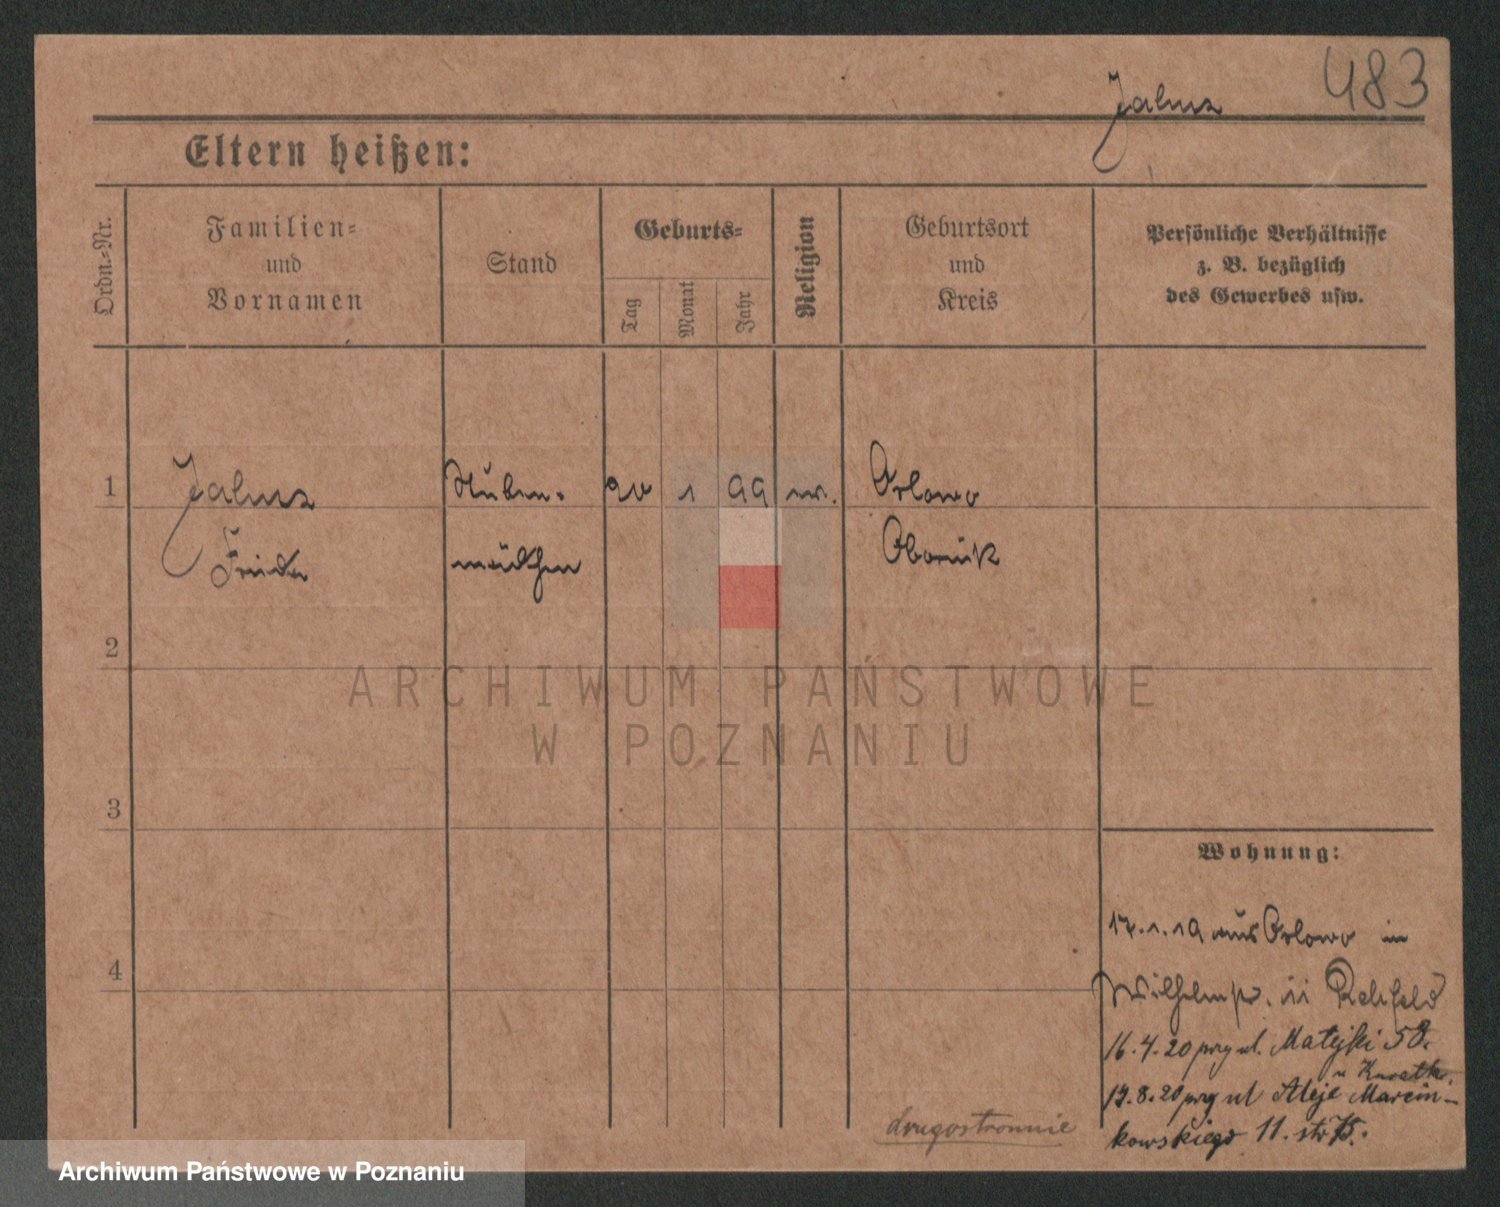 483
Jahns
Eltern heißen:
Ordn.-Nr.
Familien-
und
Vornamen
Stand
Geburts-
Tag
Monat
Jahr
Religion
Geburtsort
und
Kreis
Persönliche Verhältnisse
z. B. bezüglich
des Gewerbes usw.
1
Jahns Stuben- 20 1 99 ev. Orlowo
Frieda mädchen Obornik
2
ARCHIWUM PAŃSTWOWE
W POZNANIU
3
Wohnung:
17.1.19 aus Orlowo in
4
Wilhelmstr. 11 Rehfeld
16.4.20 przy ul. Matejki 58.
17.8.20 przy ul Aleje Marcin-
kowskiego 11.
drugostronnie
Archiwum Państwowe w Poznaniu